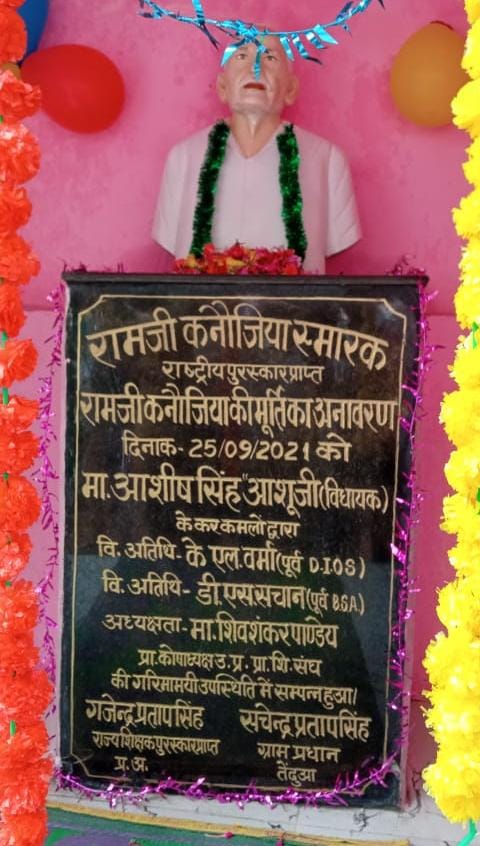 रामजी कनौजिया स्मारक
राष्ट्रीय पुरस्कार प्राप्त
रामजी कनौजिया की मूर्ति का अनावरण
दिनाक- 25/09/2021 को
मा. आशीष सिंह "आशूजी (विधायक)
के कर कमलों द्वारा
वि. अतिथि- के एल. वर्मा (पूर्व D.I.O.S)
वि. अतिथि- डी. एस सचान (पूर्व B.S.A.)
अध्यक्षता- मा. शिवशंकर पाण्डेय
प्रा. कोषाध्यक्ष उ. प्र. प्रा. शि. संघ
की गरिमामयी उपस्थिति में सम्पन्न हुआ।
गजेन्द्र प्रताप सिंह सचेन्द्र प्रताप सिंह
राज्य शिक्षक पुरस्कार प्राप्त ग्राम प्रधान
प्र. अ. तेंदुआ